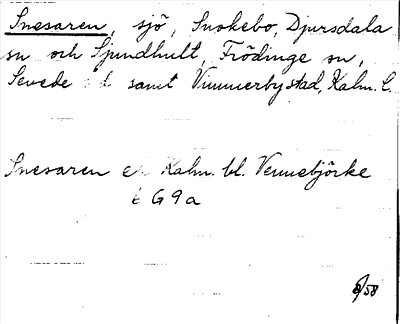 Snesaren, sjö, Snokebo, Djursdala
sn och Spundhult, Frödinge sn,
Sevede hd samt Vimmerby stad, Kalm. l.
Snesaren ek Kalm. bl. Vennebjörke
G9a
/58